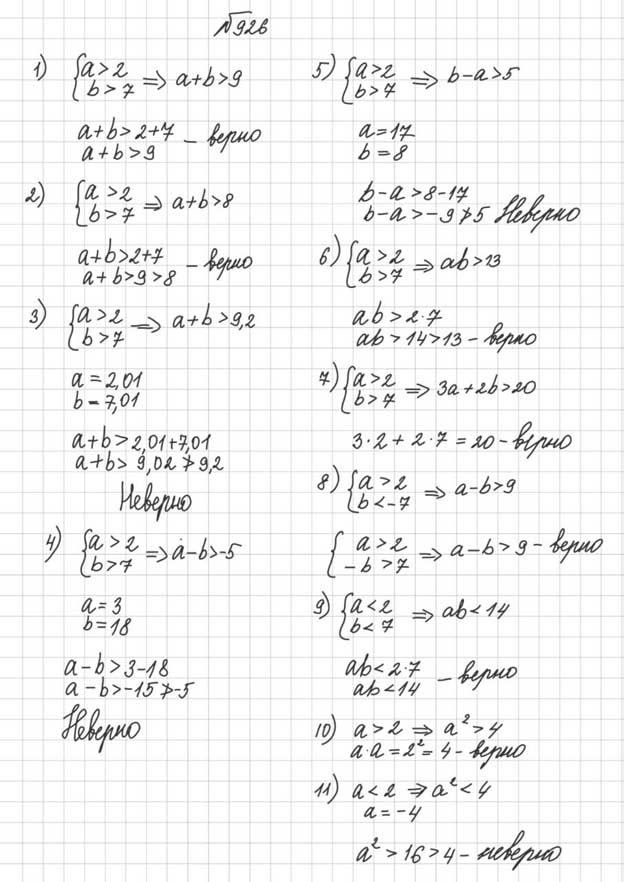 №926
1) {a>2
b>7 ⟹ a+b>9
a+b>2+7
a+b>9 – верно
2) {a>2
b>7 ⟹ a+b>8
a+b>2+7
a+b>9>8 – верно
3) {a>2
b>7 ⟹ a+b>9,2
a=2,01
b=7,01
a+b>2,01+7,01
a+b>9,02≯9,2
Неверно
4) {a>2
b>7 ⟹ a-b>-5
a=3
b=18
a-b>3-18
a-b>-15≯-5
Неверно
5) {a>2
b>7 ⟹ b-a>5
a=17
b=8
b-a>8-17
b-a>-9≯5 Неверно
6) {a>2
b>7 ⟹ ab>13
ab>2·7
ab>14>13 – верно
7) {a>2
b>7 ⟹ 3a+2b>20
3·2+2·7=20 – верно
8) {a>2
b<-7 ⟹ a-b>9
{a>2
-b>7 ⟹ a-b>9 – верно
9) {a<2
b<7 ⟹ ab<14
ab<2·7
ab<14 – верно
10) a>2 ⟹ a²>4
a·a=2²=4 – верно
11) a<2 ⟹ a²<4
a=-4
a²>16>4 – неверно